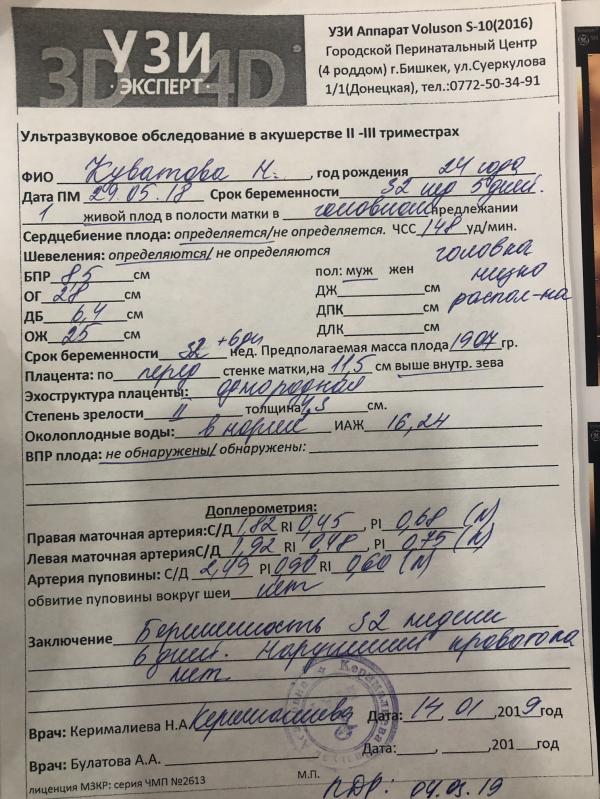 3D УЗИ 4D
·ЭКСПЕРТ·
УЗИ Аппарат Voluson S-10(2016)
Городской Перинатальный Центр
(4 роддом) г.Бишкек, ул.Суеркулова
1/1(Донецкая), тел.:0772-50-34-91
Ультразвуковое обследование в акушерстве II -III триместрах
ФИО Куватова Н. , год рождения 24 года
Дата ПМ 29.05.18 Срок беременности 32 нед 5 дней.
1 живой плод в полости матки в головном предлежании
Сердцебиение плода: определяется/не определяется. ЧСС 148 уд/мин.
Шевеления: определяются/ не определяются головка
БПР 85 см пол: муж жен низко
ОГ 28 см ДЖ см распол-на
ДБ 6,4 см ДПК см
ОЖ 25 см ДЛК см
Срок беременности 32 +6дн нед. Предполагаемая масса плода 1907 гр.
Плацента: по перед стенке матки,на 11,5 см выше внутр. зева
Эхоструктура плаценты: однородная
Степень зрелости II толщина см.
Околоплодные воды: в норме ИАЖ 16,24
ВПР плода: не обнаружены/ обнаружены:
Доплерометрия:
Правая маточная артерия:С/Д 1,82 RI 0,45, PI 0,68 (N)
Левая маточная артерияС/Д 1,92 RI 0,48, PI 0,75 (N)
Артерия пуповины: С/Д 2,49 PI 0,90 RI 0,60 (N)
обвитие пуповины вокруг шеи нет
Заключение Беременность 32 недели
6 дней. Нарушений кровотока
нет.
Врач: Керималиева Н.А. Керималиева Дата: 14, 01, 2019год
Врач: Булатова А.А. Дата: , 201 год
лицензия МЗКР: серия ЧМП №2613 М.П. ПДР: 04.03.19